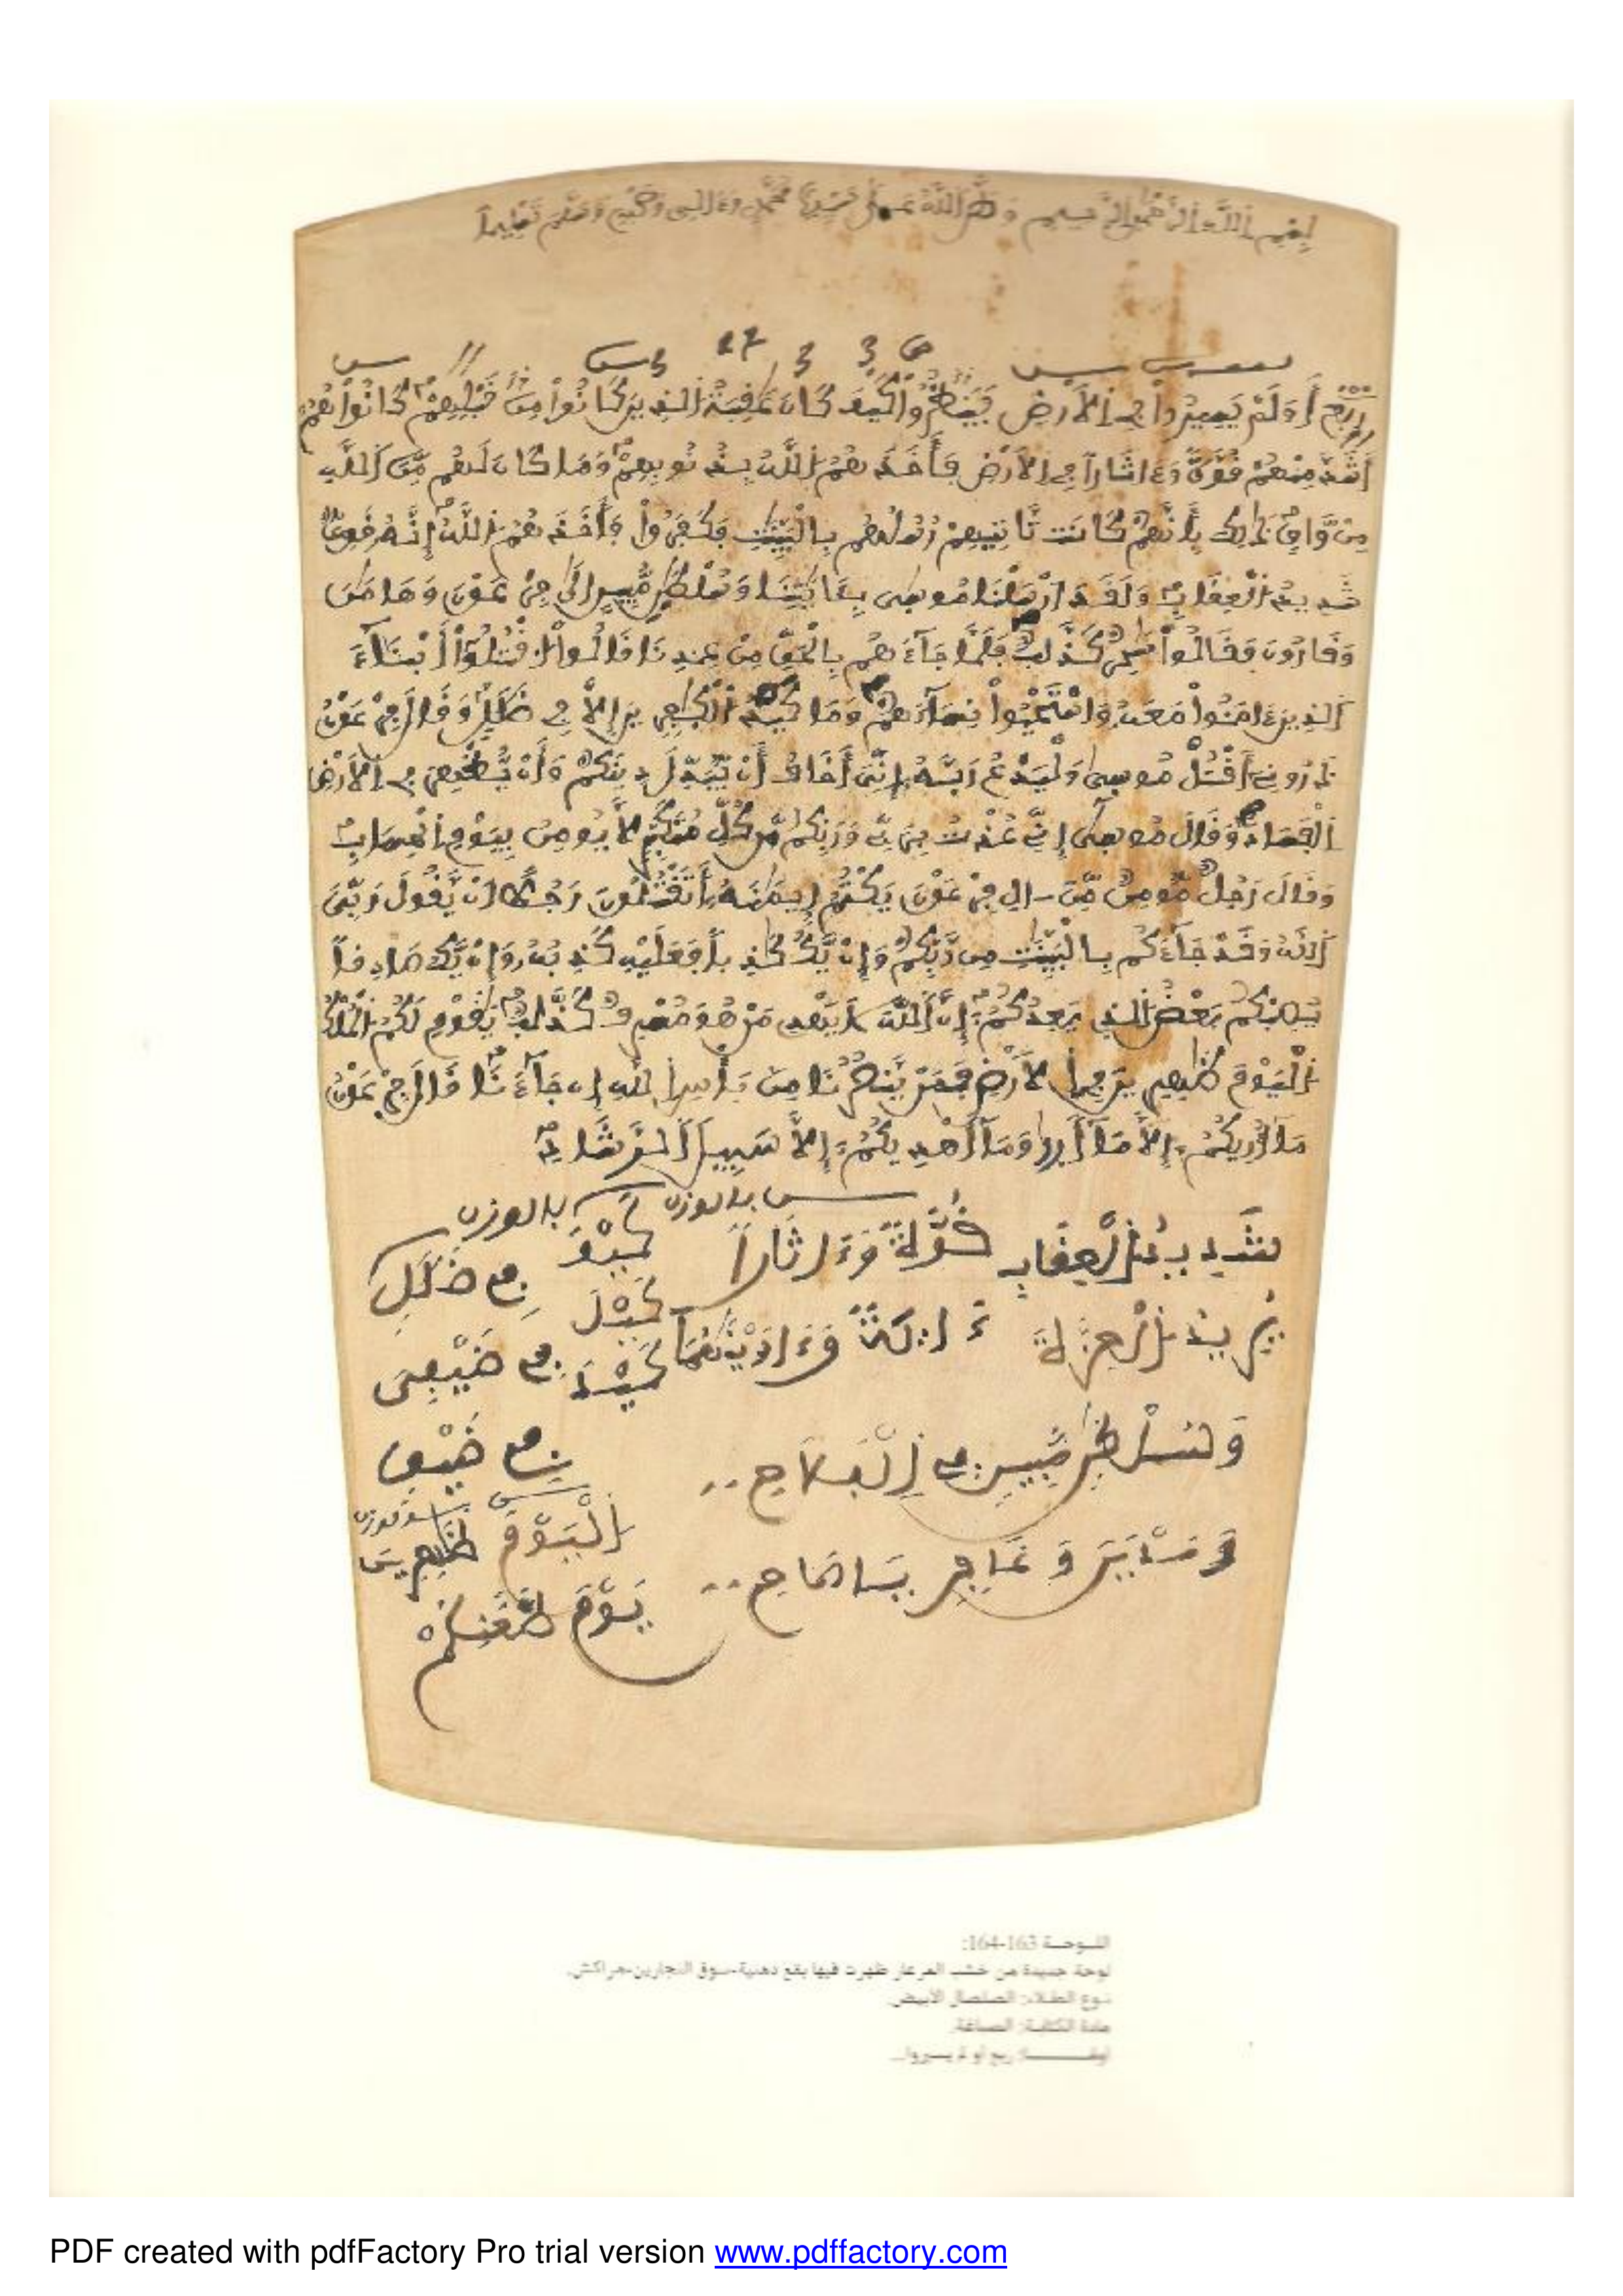 بسم الله الرحمن الرحيم وصلى الله على سيدنا محمد وءاله وصحبه وسلم تسليما
ربع أَوَلَمْ يَسِيرُواْ في اِلَارْضِ فَيَنظُرُواْ كَيْفَ كَانَ عَٰقِبَةُ الذِينَ كَانُواْ مِن قَبْلِهِمْ كَانُواْ هُمُ
أَشَدَّ مِنْهُمْ قُوَّةً وَءَاثَاراً في اِلَارْضِ فَأَخَذَهُمُ اللَّهُ بِذُنُوبِهِمْ وَمَا كَانَ لَهُم مِّنَ اَللَّهِ
مِنْ وَّاقٍ ذَٰلِكَ بِأَنَّهُمْ كَانَت تَّأْتِيهِمْ رُسُلُهُم بِالْبَيِّنَٰتِ فَكَفَرُواْ فَأَخَذَهُمُ اللَّهُ إِنَّهُ قَوِيٌّ
شَدِيدُ اُلْعِقَابِ وَلَقَدَ اَرْسَلْنَا مُوسَىٰ بِـَٔايَٰتِنَا وَسُلْطَٰنٍ مُّبِينٍ اِلَىٰ فِرْعَوْنَ وَهَامَٰنَ
وَقَارُونَ فَقَالُواْ سَٰحِرٌ كَذَّابٌ فَلَمَّا جَآءَهُم بِالْحَقِّ مِنْ عِندِنَا قَالُواْ اُقْتُلُوٓاْ أَبْنَآءَ
اَلذِينَ ءَامَنُواْ مَعَهُ وَاسْتَحْيُواْ نِسَآءَهُمْ وَمَا كَيْدُ اُلْكَٰفِرِينَ إِلَّا في ضَلَٰلٍ وَقَالَ فِرْعَوْنُ
ذَرُونِيَ أَقْتُلْ مُوسَىٰ وَلْيَدْعُ رَبَّهُ إِنِّيَ أَخَافُ أَنْ يُّبَدِّلَ دِينَكُمْ وَأَنْ يُّظْهِرَ في اِلَارْضِ
اِلْفَسَادَ وَقَالَ مُوسَىٰ إِنِّي عُذْتُ بِرَبِّي وَرَبِّكُم مِّن كُلِّ مُتَكَبِّرٍ لَّا يُومِنُ بِيَوْمِ اِلْحِسَابِ
وَقَالَ رَجُلٌ مُّومِنٌ مِّنَ اٰلِ فِرْعَوْنَ يَكْتُمُ إِيمَٰنَهُ أَتَقْتُلُونَ رَجُلًا اَنْ يَّقُولَ رَبِّيَ
اَللَّهُ وَقَدْ جَآءَكُم بِالْبَيِّنَٰتِ مِن رَّبِّكُمْ وَإِنْ يَّكُ كَٰذِباً فَعَلَيْهِ كَذِبُهُ وَإِنْ يَّكُ صَادِقاً
يُصِبْكُم بَعْضُ الذِي يَعِدُكُمُ إِنَّ اَللَّهَ لَا يَهْدِي مَنْ هُوَ مُسْرِفٌ كَذَّابٌ يَٰقَوْمِ لَكُمُ اُلْمُلْكُ
اُلْيَوْمَ ظَٰهِرِينَ في اِلَارْضِ فَمَنْ يَّنصُرُنَا مِن بَأْسِ اِللَّهِ إِن جَآءَنَا قَالَ فِرْعَوْنُ
مَآ أُرِيكُمُ إِلَّا مَآ أَرىٰ وَمَآ أَهْدِيكُمُ إِلَّا سَبِيلَ اَلرَّشَادِ
بالوزن بالوزن
شَدِيدُ اُلْعِقَابِ قُوَّةً وَءَاثَاراً كَيْفَ في ضَلَٰلٍ
يُرِيدُ اُلْعِزَّةَ ءَالِهَةً وَءَاوَيْنَٰهُمَا كَيْلَ كَيْدَ في ضَيْفِي
وَسُلْطَٰنٍ مُّبِينٍ في ضَيْقٍ
اَلْيَوْمَ ظَٰهِرِينَ
يَوْمَ ظَعْنِكُمْ
اللـوحـة 163-164:
لوحة جديدة من خشب العرعار ظهرت فيها بقع دهنية-سوق النجارين-مراكش.
نـوع الطـلاء: الصلصال الأبيض.
مادة الكتابـة: الصماغة.
PDF created with pdfFactory Pro trial version www.pdffactory.com